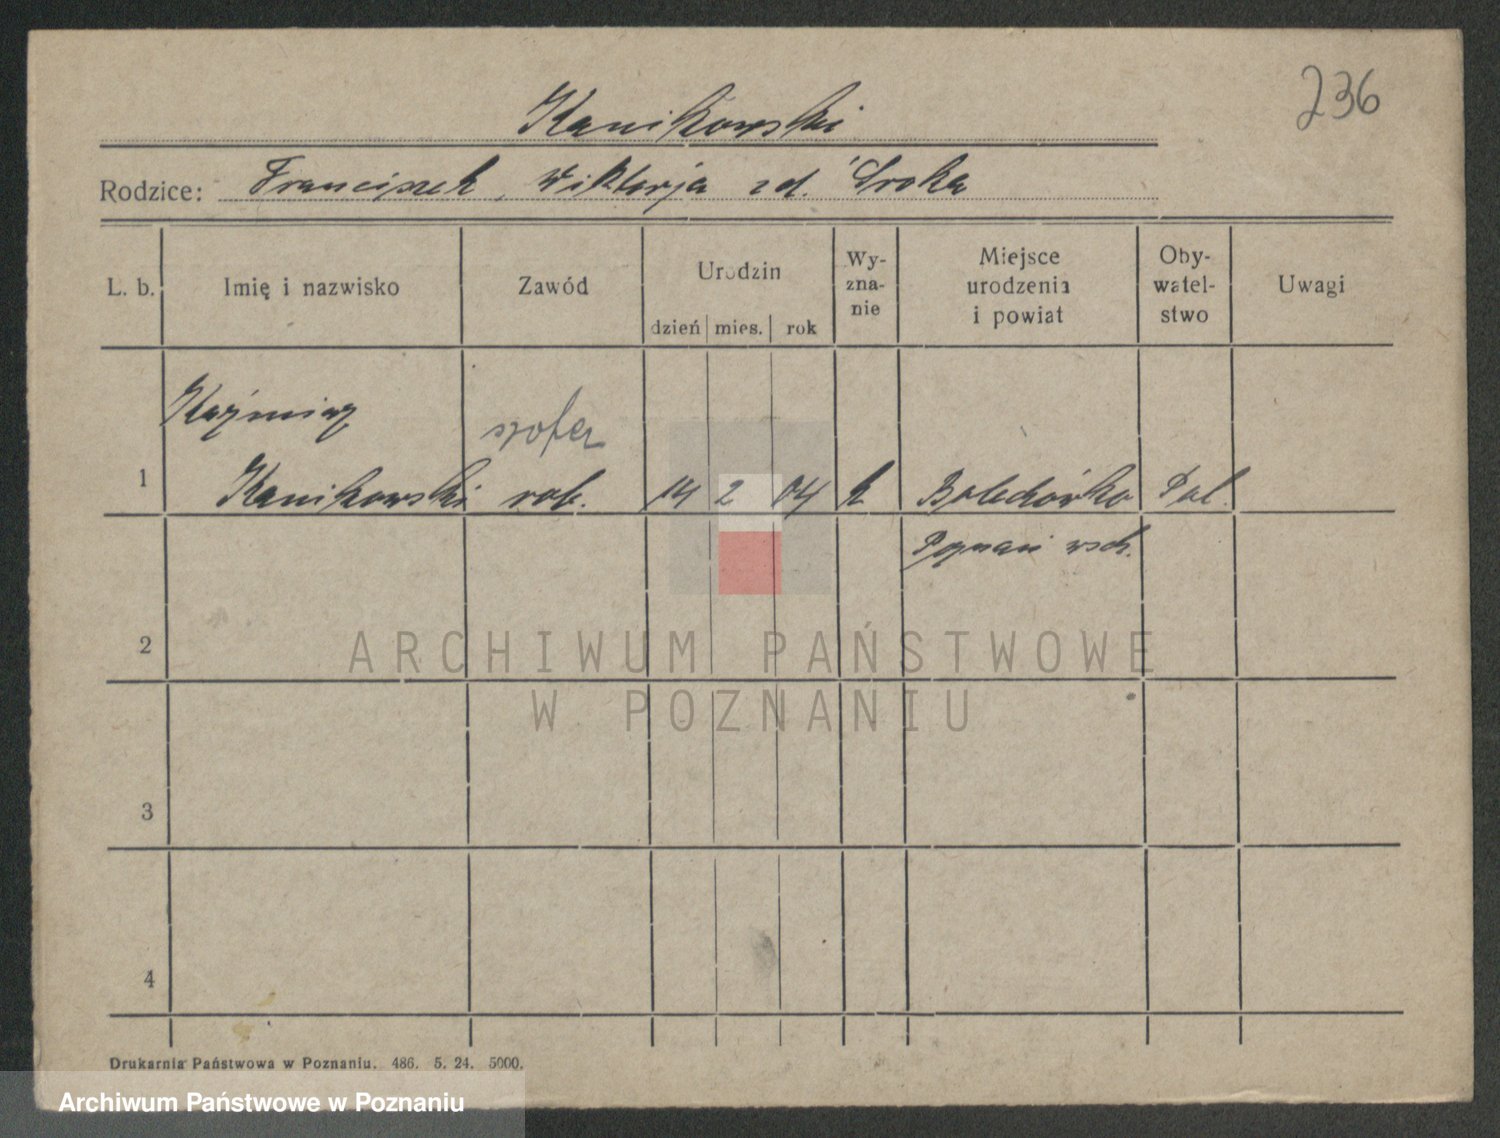 236
Kanikowski
Rodzice: Franciszek, Wiktorja zd. Sroka
L. b. Imię i nazwisko Zawód Urodzin dzień mies. rok Wy-zna-nie Miejsce urodzenia i powiat Oby-watel-stwo Uwagi
Kaźmierz
szofer
1 Kanikowski rob. 14 2 04 k Bolechówko Pol.
Poznań wsch.
2
ARCHIWUM PAŃSTWOWE
W POZNANIU
3
4
Drukarnia Państwowa w Poznaniu. 486. 5. 24. 5000.
Archiwum Państwowe w Poznaniu